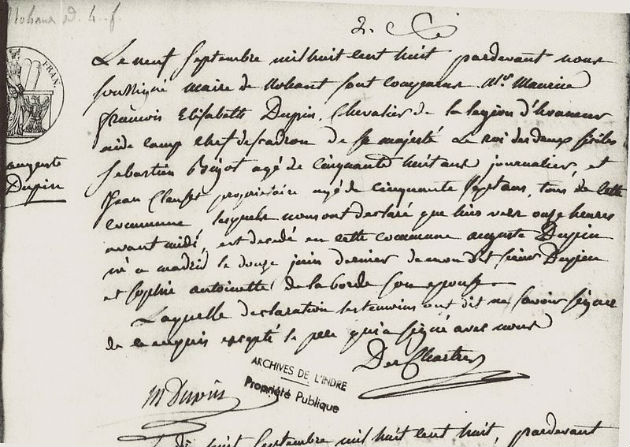 Nohant d. 4. f.
2.
FRAN
auguste
Dupin
Le neuf Septembre mil huit cent huit pardevant nous
soussigné maire de Nohant sont comparus Mrs Maurice
françois Elisabeth Dupin, Chevalier de la légion d'honneur
aide camp chef descadron de Sa majesté Le roi des deux siciles
Sebastien agé de cinquante huit ans journalier, et
Jean propriétaire agé de cinquante sept ans, tous de cette
commune lesquels nous ont declaré que hier vers onze heures
avant midi, est decedé en cette commune auguste Dupin
né a madrid le douze juin dernier de mon dit sieur Dupin
et sophie antoinette de la borde son epouse.
Laquelle declaration les temoins ont dit ne savoir signer
de ce enquis excepté le pere qui a signé avec nous
Des Chartres
ARCHIVES DE L'INDRE
Propriété Publique
m Dupin
Septembre mil huit cent huit, pardevant